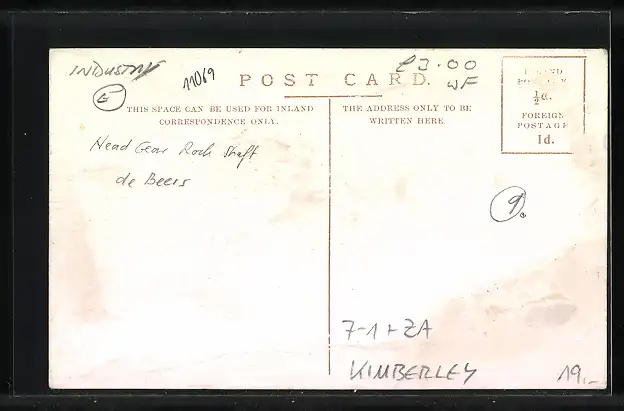 INDUSTRY
11069
£3.00
WF
POST CARD.
E
THIS SPACE CAN BE USED FOR INLAND
CORRESPONDENCE ONLY.
THE ADDRESS ONLY TO BE
WRITTEN HERE.
INLAND
POSTAGE
½d.
FOREIGN
POSTAGE
1d.
Head Gear Rock Shaft
de Beers
9.
7-1+ZA
KIMBERLEY
19,-